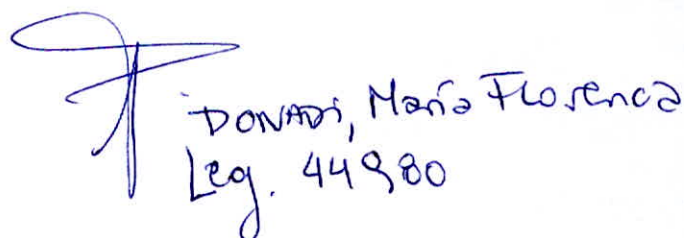 DONADI, María Florencia
Leg. 44980